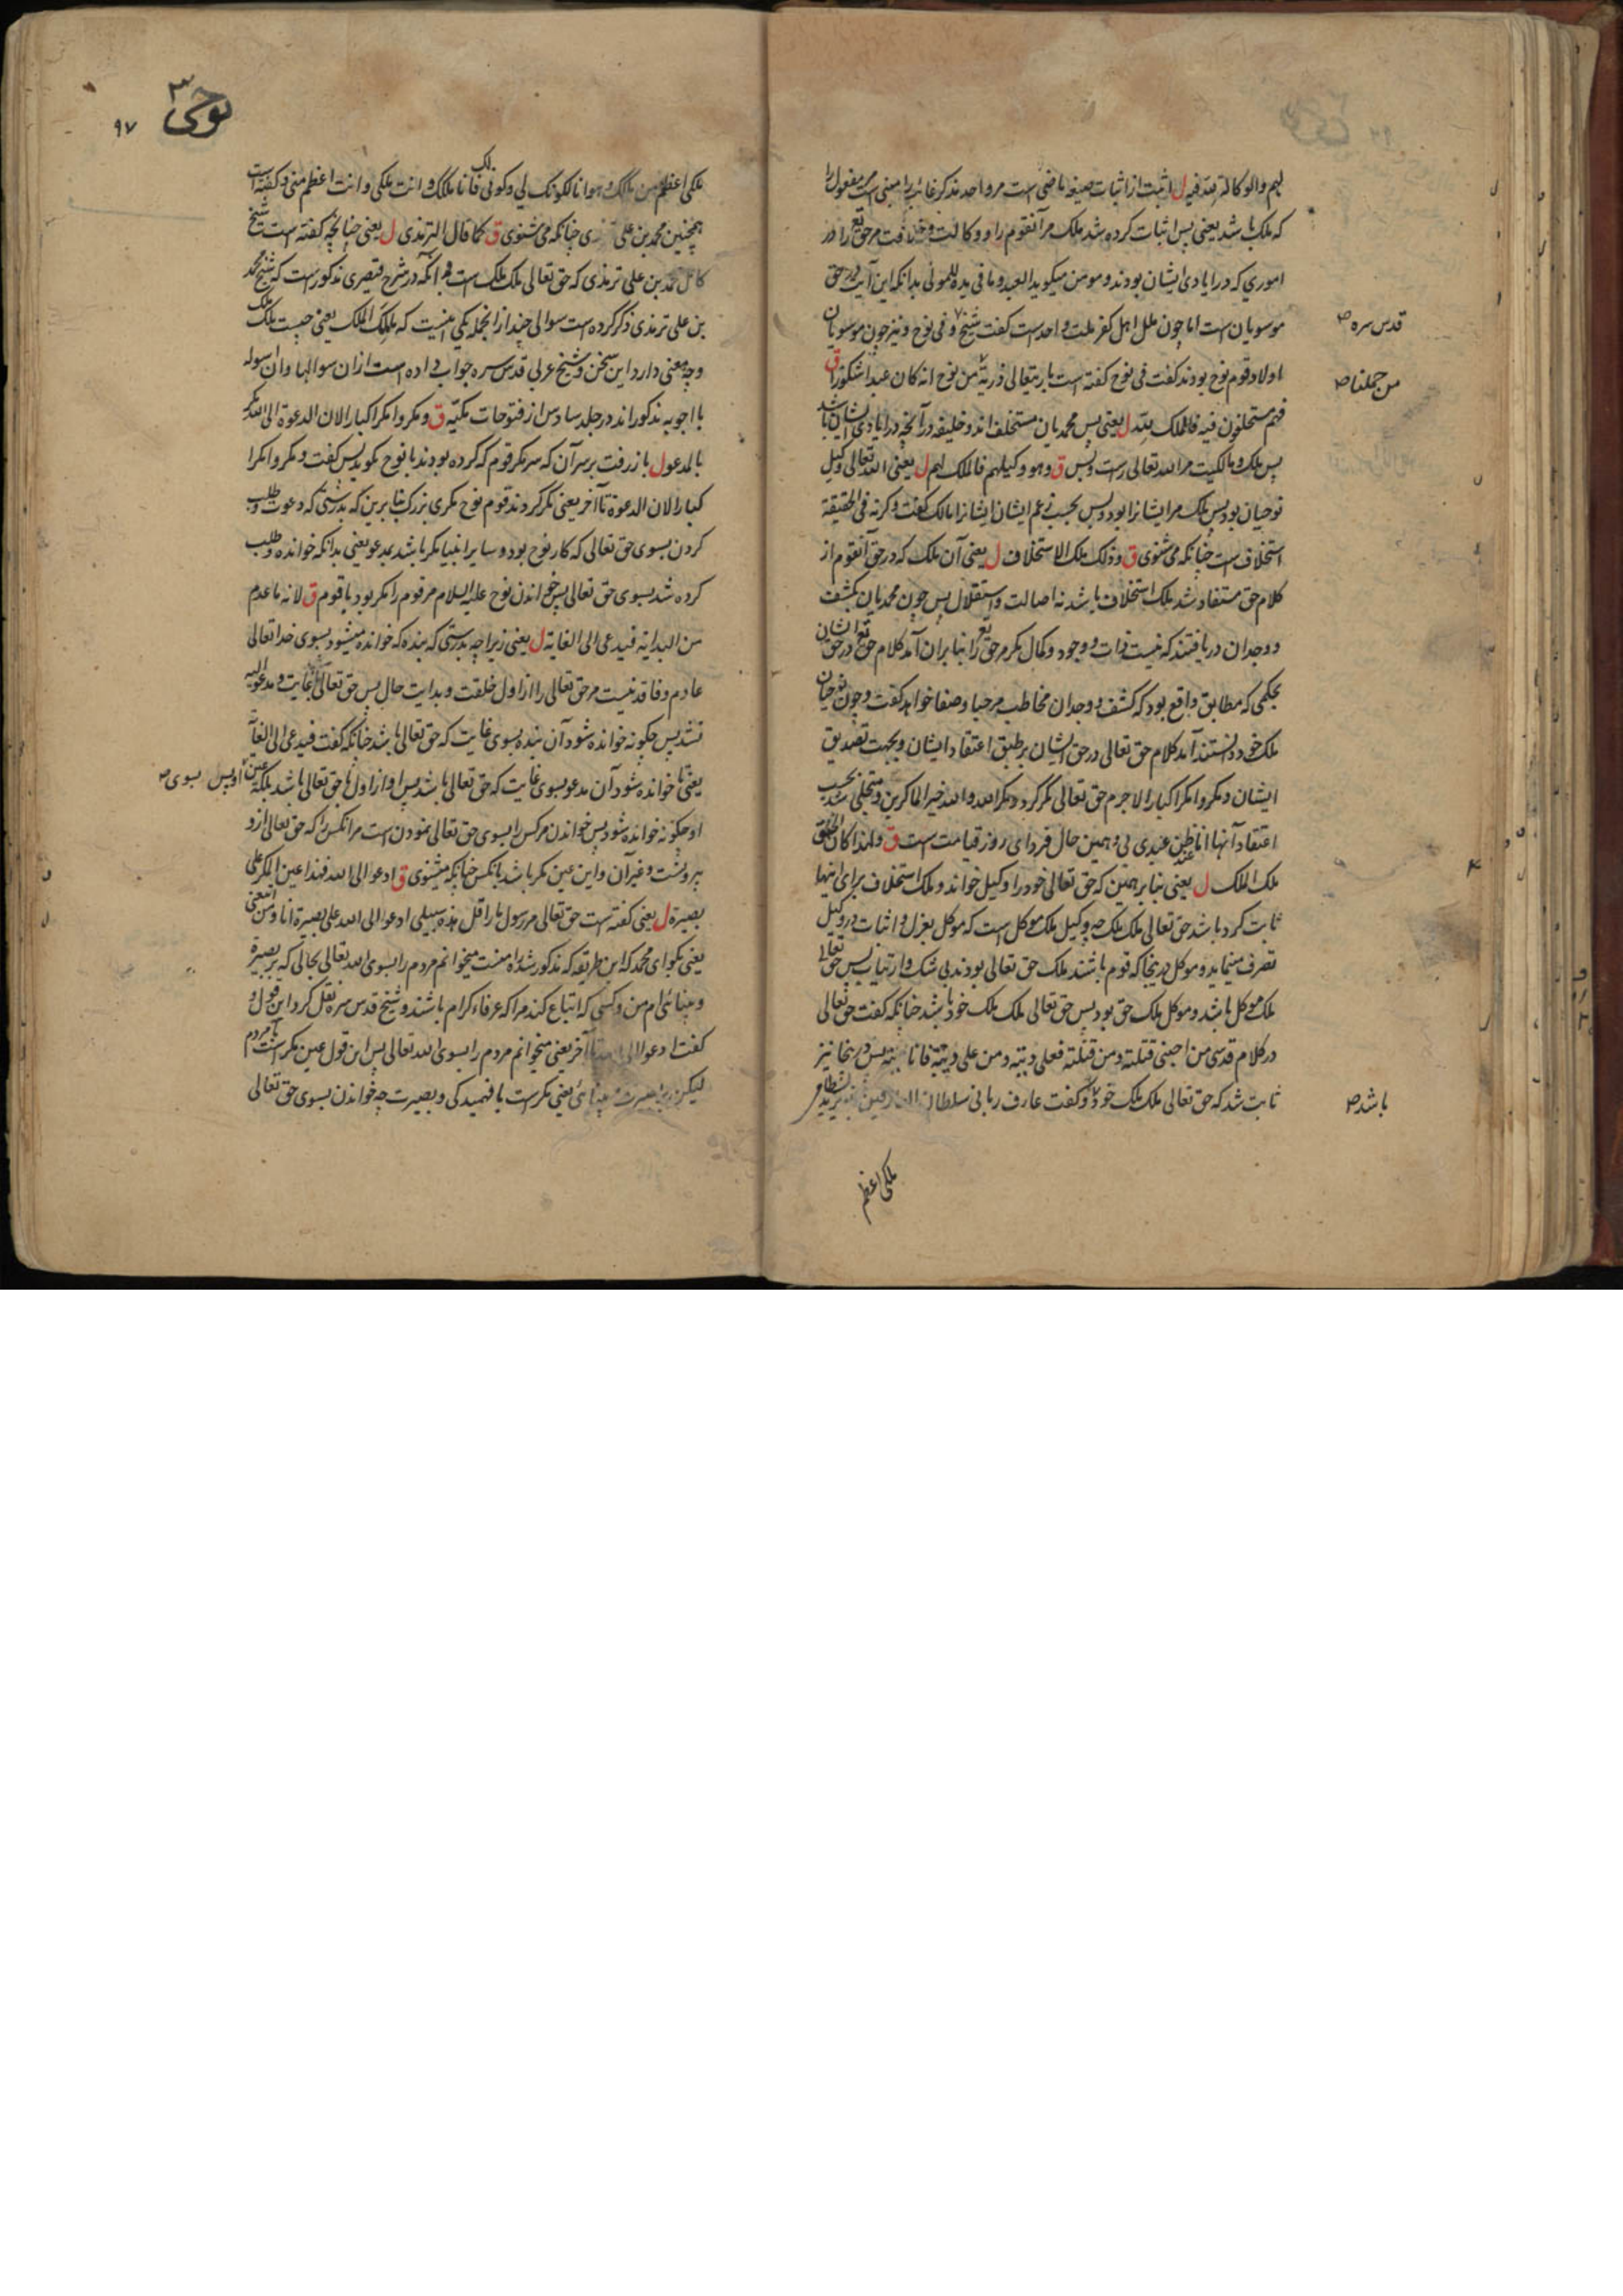 لهم والوكالة لله فیه ل اثبت از اثبات صیغه ماضی است مر واحد مذکر غائب را مبنی است مر مفعول را
که ملک باشد یعنی پس اثبات کرده شد ملک مر آنقوم را و وکالت و خلافت مر حق تع را در
اموری که در ایادی ایشان بودند و مومن میگوید العبد و ما فی یده للمولی بدانکه این آیت در حق
موسویان است اما چون ملل اهل کفر ملت واحد است گفت شیخ و فی نوح و نیز چون موسویان
قدس سره
اولاد قوم نوح بودند گفت فی نوح گفته است باریتعالی ذریة من نوح انه کان عبدا شکورا ق
من حملنا
فهم مستخلفون فیه فالملک لله ل یعنی پس محمدیان مستخلف اند و خلیفه در آنچه در ایادی ایشان باشد
پس ملک و مالکیت مر الله تعالی راست و بس ق وهو وکیلهم فالملک لهم ل یعنی الله تعالی وکیل
نوحیان بود پس ملک مر ایشانرا بود و پس بحسب زعم ایشان ایشانرا مالک گفت و گرنه فی الحقیقة
استخلاف است چنانکه می شنوی ق وذلک ملک الاستخلاف ل یعنی آن ملک که در حق آنقوم از
کلام حق مستفاد شد ملک استخلاف باشد نه اصالت و استقلال پس چون محمدیان بکشف
و وجدان دریافتند که نیست ذات و وجود و کمال مگر مر حق تع را بنابران آمد کلام حق تع در حق ایشان
بحکمی که مطابق واقع بود که کشف و وجدان مخاطب مرحبا و صفا خواهد گفت و چون نوحیان
ملک خود دانستند آمد کلام حق تعالی در حق ایشان بر طبق اعتقاد ایشان و بجهت تصدیق
ایشان ومکروا مکرا کبارا لاجرم حق تعالی مکر کرد ومکر الله والله خیر الماکرین و متجلی شد بحسب
اعتقاد آنها انا عند ظن عبدی بی و همین حال فردای روز قیامت است ق ولهذا کان الحق
ملک الملک ل یعنی بنابر همین که حق تعالی خود را وکیل خواند و ملک استخلاف برای اینها
ثابت کرد باشد حق تعالی ملک ملک چه وکیل ملک موکل است که موکل بعزل و اثبات در وکیل
تصرف مینماید و موکل درینجا که قوم باشند ملک حق تعالی بودند بی شک و ارتیاب پس حق تعالی
ملک موکل باشد و موکل ملک حق بود پس حق تعالی ملک ملک خود باشد چنانکه گفت حق تعالی
در کلام قدسی من احبنی قتلته ومن قتلته فعلی دیته ومن علی دیته فانا دیته پس درینجا نیز
ثابت شد که حق تعالی ملک ملک خود و گفت عارف ربانی سلطان العارفین بایزید بسطامی
باشد
ملکی اعظم
نوحی ۳
۹۷
ملکی اعظم من ملکک وهو انا لکونک لی وکونی لک فانا ملکک وانت ملکی وانت اعظم منی و گفته است
همچنین محمد بن علی ترمذی چنانکه می شنوی ق کما قال الترمذی ل یعنی چنانچه گفته است شیخ
کامل محمد بن علی ترمذی که حق تعالی ملک ملک است بدانکه در شرح قیصری مذکور است که شیخ محمد
بن علی ترمذی ذکر کرده است سوالی چند ازانجمله یکی اینست که ملک الملک یعنی چیست ملک ملک
و چه معنی دارد این سخن و شیخ عربی قدس سره جواب داده است ازان سوالها و آن اسوله
با اجوبه مذکوراند در جلد سادس از فتوحات مکیّه ق ومکروا مکرا کبارا لان الدعوة الی الله مکر
بالمدعو ل باز رفت بر سر آن که سر مکر قوم که کرده بودند با نوح بگوید پس گفت ومکروا مکرا
کبارا لان الدعوة تا آخر یعنی مکر کردند قوم نوح مکری بزرگ بنابرین که بدرستی که دعوت و طلب
کردن بسوی حق تعالی که کار نوح بود و سایر انبیا مکر باشد بمدعو یعنی بدانکه خوانده و طلب
کرده شد بسوی حق تعالی پس خواندن نوح علیه السلام مر قوم را مکر بود با قوم ق لانه ما عدم
من البدایة فیدعی الی الغایة ل یعنی زیرا چه بدرستی که بنده که خوانده میشود بسوی خدا تعالی
عادم و فاقد نیست مر حق تعالی را از اول خلقت و بدایت حال پس حق تعالی غایت و مدعو الیه
نشد پس چگونه خوانده شود آن بنده بسوی غایت که حق تعالی باشد چنانکه گفت فیدعی الی الغایة
یعنی تا خوانده شود آن مدعو بسوی غایت که حق تعالی باشد پس او از اول با حق تعالی باشد بلکه عین
او پس بسوی
او چگونه خوانده شود پس خواندن مر کس را بسوی حق تعالی نمودن است مر آنکس را که حق تعالی ازو
بیرونست و غیر آن و این عین مکر باشد با آنکس چنانکه میشنوی ق ادعوا الی الله فهذا عین المکر علی
بصیرة ل یعنی گفته است حق تعالی مر رسول ما را قل هذه سبیلی ادعوا الی الله علی بصیرة انا ومن اتبعنی
یعنی بگو ای محمد که این طریقه که مذکور شد راه منست میخوانم مردم را بسوی الله تعالی بحالی که بر بصیرة
و بینائی ام من و کسی که اتباع کند مرا که عرفاء کرام باشند و شیخ قدس سره نقل کرد این قول و
گفت ادعوا الی الله تا آخر یعنی میخوانم مردم را بسوی الله تعالی پس این قول عین مکر است با مردم
لیکن بر بصیرت و بینائی یعنی مکرست با فهمیدگی و بصیرت چه خواندن بسوی حق تعالی